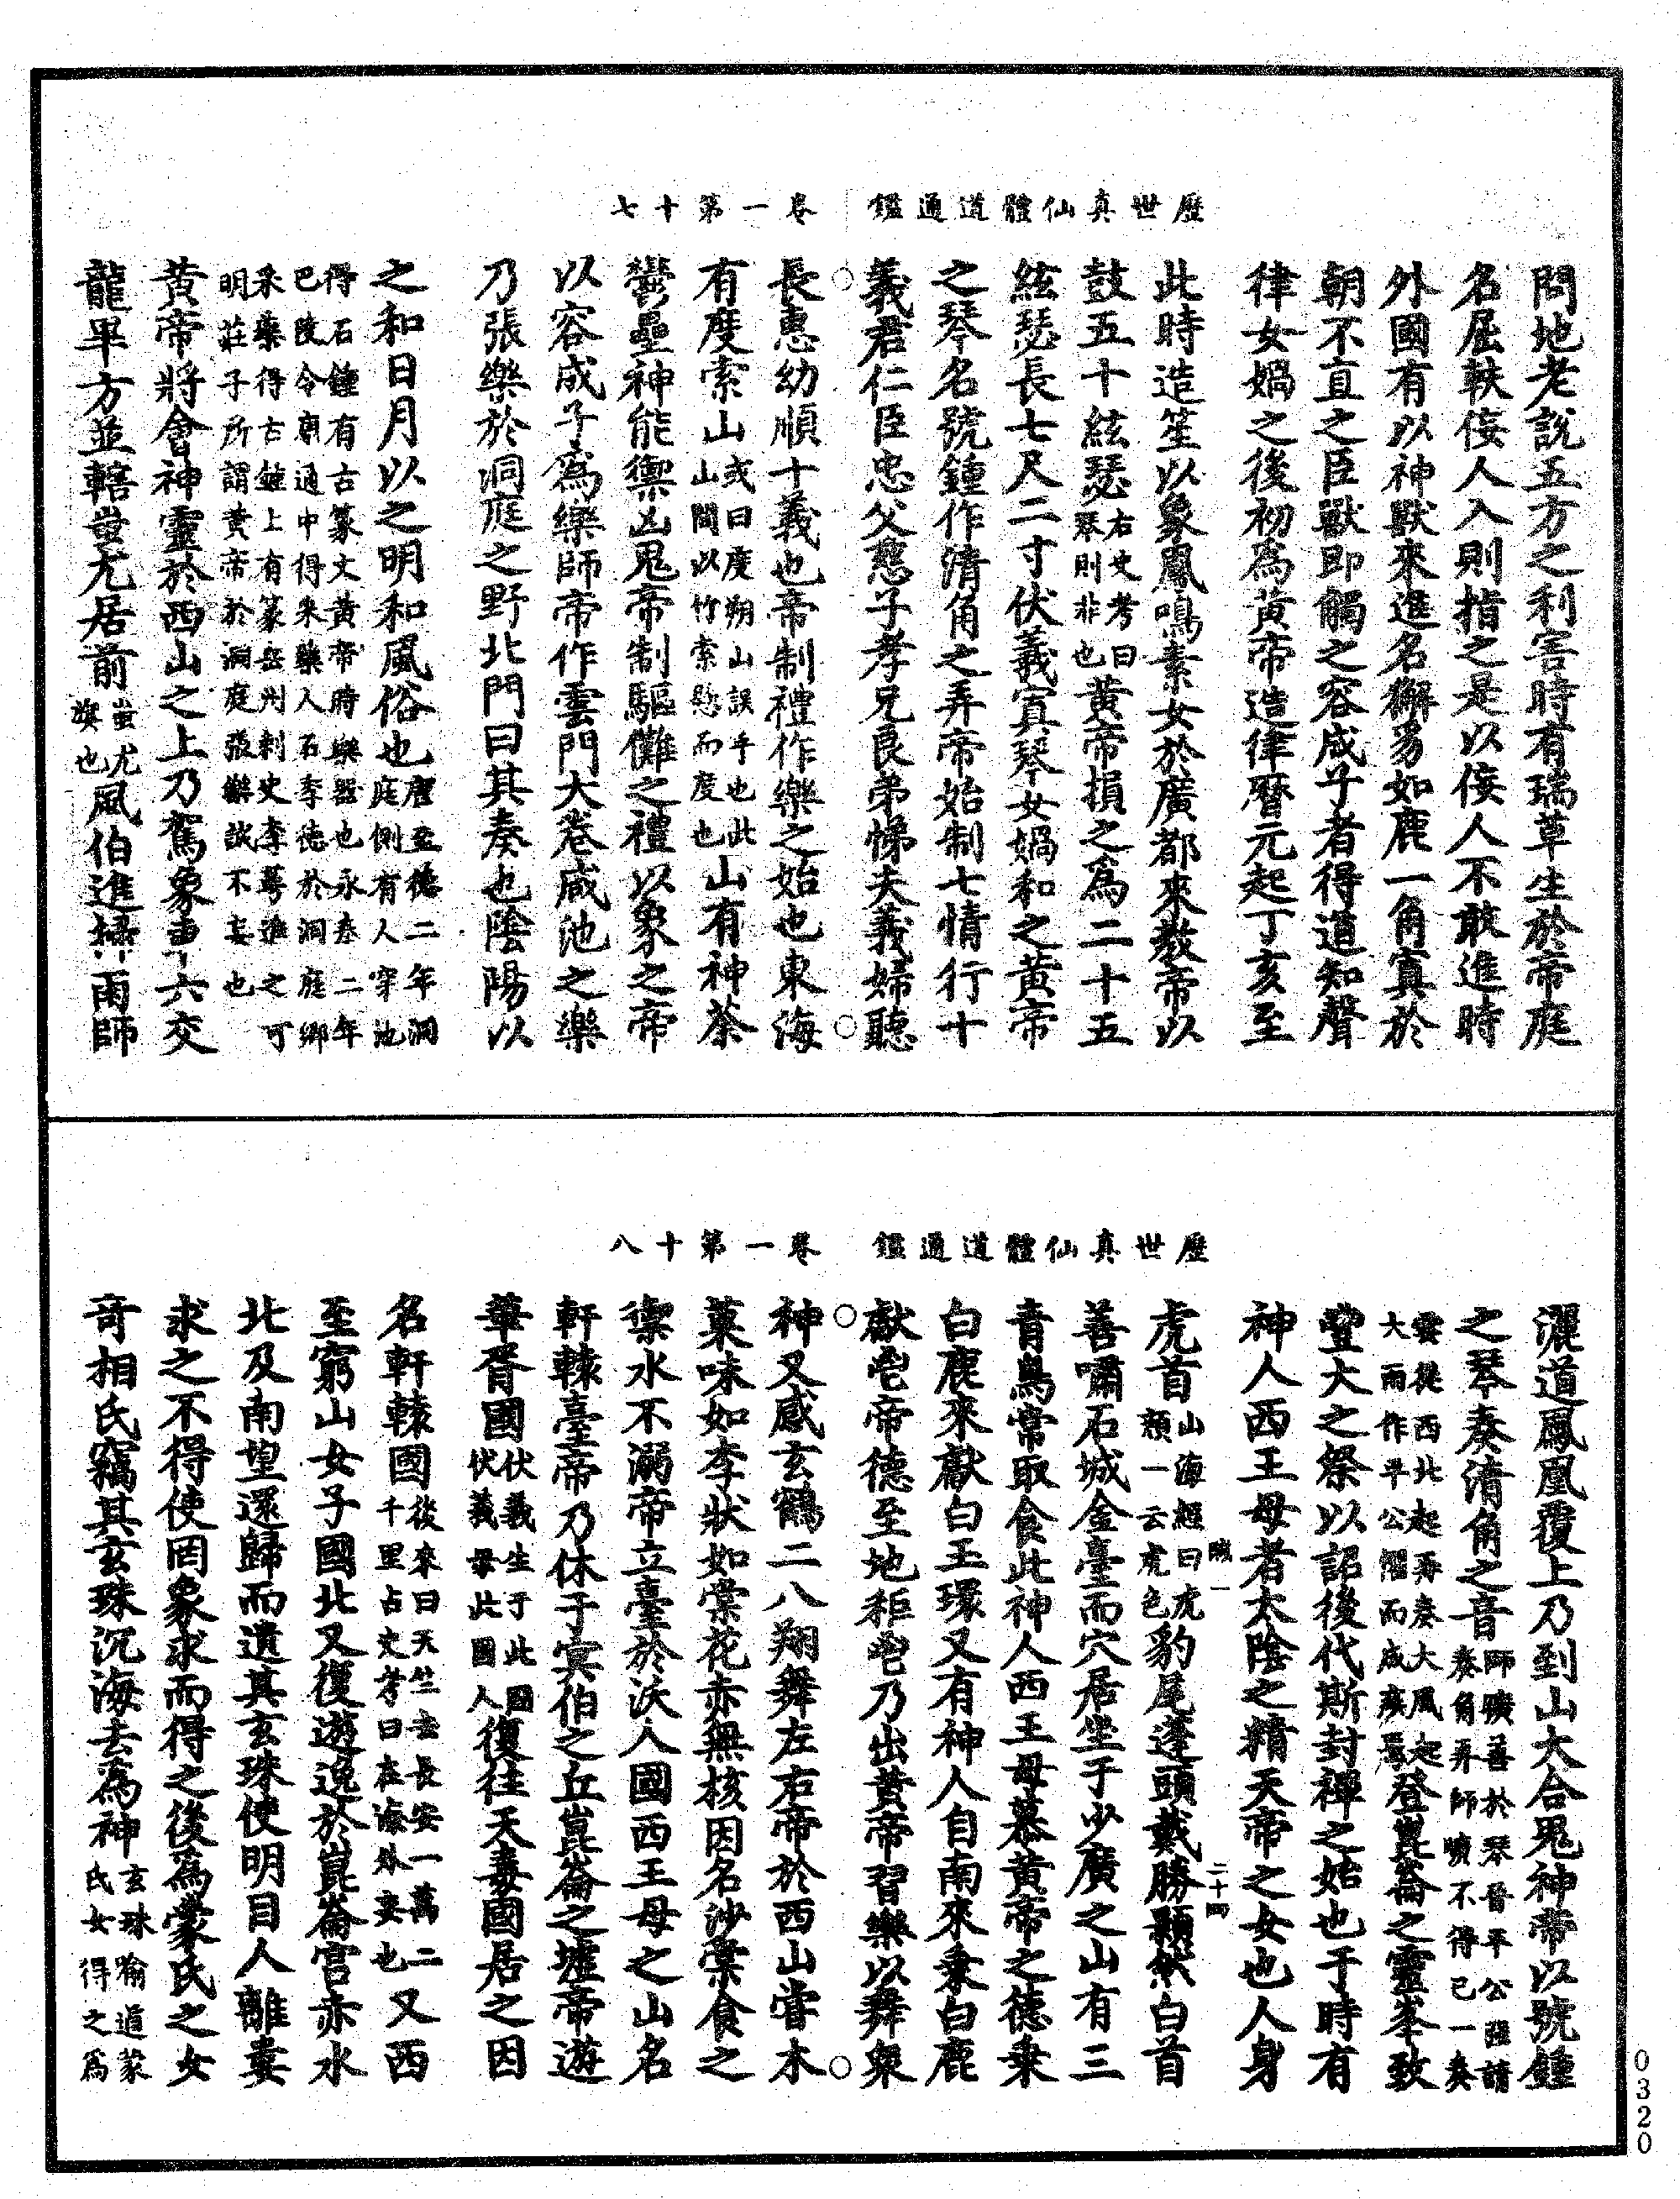 歷世真仙體道通鑑　卷一第十七
問地老說五方之利害時有瑞草生於帝庭
名屈軼佞人入則指之是以佞人不敢進時
外國有以神獸來進名獬豸如鹿一角寘於
朝不直之臣獸即觸之容成子者得道知聲
律女媧之後初為黃帝造律曆元起丁亥至
此時造笙以象鳳鳴素女於廣都來教帝以
鼓五十絃瑟右史考曰琴則非也黃帝損之為二十五
絃瑟長七尺二寸伏羲寘琴女媧和之黃帝
之琴名號鍾作清角之弄帝始制七情行十
義君仁臣忠父慈子孝兄良弟悌夫義婦聽
長惠幼順十義也帝制禮作樂之始也東海
有度索山或曰度朔山誤乎也此山間以竹索懸而度也山有神荼
鬱壘神能禦凶鬼帝制驅儺之禮以象之帝
以容成子為樂師帝作雲門大卷咸池之樂
乃張樂於洞庭之野北門曰其奏也陰陽以
之和日月以之明和風俗也唐至德二年洞庭側有人穿池
得石鍾有古篆文黃帝時樂器也永泰二年
巴陵令廟通中得采藥人石李德於洞庭鄉
采藥得古鍾上有篆岳州刺史李萼進之可
明莊子所謂黃帝於洞庭張樂誠不妄也
黃帝將會神靈於西山之上乃駕象車六交
龍畢方並轄蚩尤居前蚩尤旗也風伯進掃雨師
歷世真仙體道通鑑　卷一第十八
灑道鳳凰覆上乃到山大合鬼神帝以號鍾
之琴奏清角之音師曠善於琴晉平公強請奏角弄師曠不得已一奏
雲從西北起再奏大風起大雨作平公懼而成疾焉登崑崙之靈峯致
豐大之祭以詔後代斯封禪之始也于時有
神人西王母者太陰之精天帝之女也人身
虎首山海經曰虎頹一云虎色豹尾蓬頭戴勝顥然白首
善嘯石城金臺而穴居坐于少廣之山有三
青鳥常取食此神人西王母慕黃帝之德乘
白鹿來獻白玉環又有神人自南來乘白鹿
獻鬯帝德至地秬鬯乃出黃帝習樂以舞眾
神又感玄鶴二八翔舞左右帝於西山嘗木
菓味如李狀如棠花赤無核因名沙棠食之
禦水不溺帝立臺於沃人國西王母之山名
軒轅臺帝乃休于冥伯之丘崑崙之墟帝遊
華胥國伏羲生于此國伏羲母此國人復往天毒國居之因
名軒轅國後來曰天竺去長安一萬二千里占文考曰在海外妄也又西
至窮山女子國北又復遊逸於崑崙宮赤水
北及南望還歸而遺其玄珠使明目人離婁
求之不得使罔象求而得之後為蒙氏之女
奇相氏竊其玄珠沉海去為神玄珠喻道蒙氏女得之為
二十四
0320